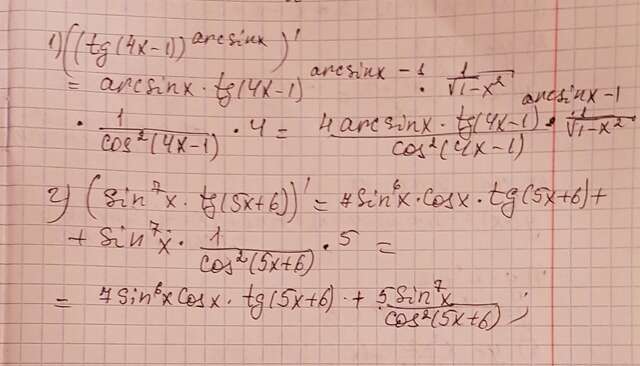 1) ((tg(4x-1))^{arcsinx})' 
= arcsinx · tg(4x-1)^{arcsinx-1} · \frac{1}{\sqrt{1-x^2}}
· \frac{1}{cos^2(4x-1)} · 4 = \frac{4 arcsinx · tg(4x-1)^{arcsinx-1}}{cos^2(4x-1)} · \frac{1}{\sqrt{1-x^2}}
2) (sin^7x · tg(5x+6))' = 7sin^6x · cosx · tg(5x+6) +
+ sin^7x · \frac{1}{cos^2(5x+6)} · 5 =
= 7sin^6x cosx · tg(5x+6) + \frac{5sin^7x}{cos^2(5x+6)};